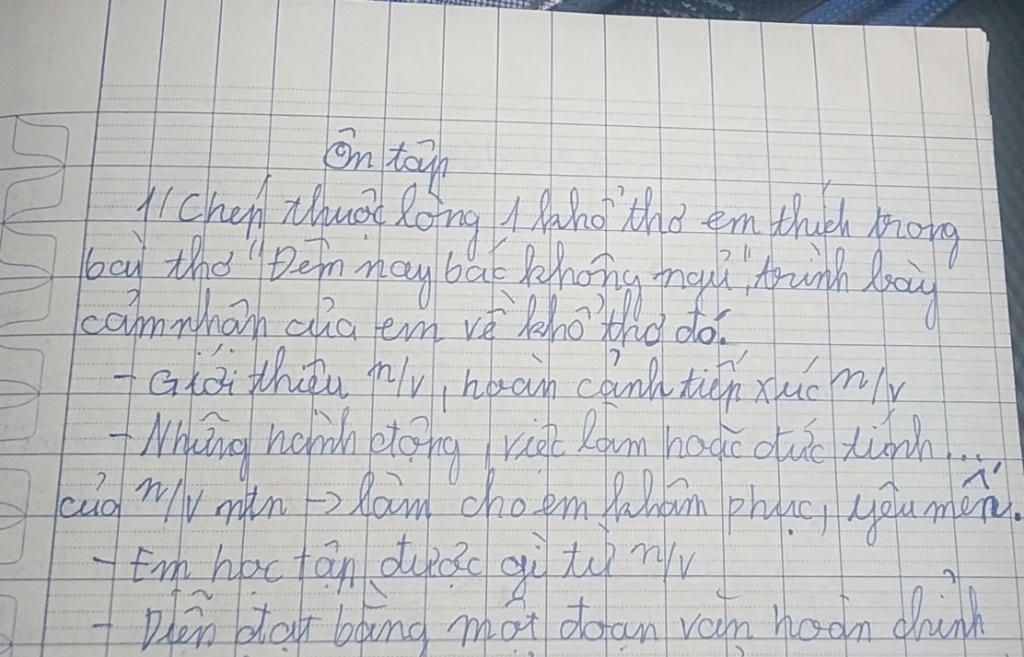 Ôn tập
1/ Chép thuộc lòng 1 khổ thơ em thích trong
bài thơ "Đêm nay bác không ngủ", trình bày
cảm nhận của em về khổ thơ đó.
- Giới thiệu n/v, hoàn cảnh tiếp xúc n/v
- Những hành động, việc làm hoặc đức tính...
của n/v mtn -> làm cho em khâm phục, yêu mến.
- Em học tập được gì từ n/v
- Diễn đạt bằng một đoạn văn hoàn chỉnh